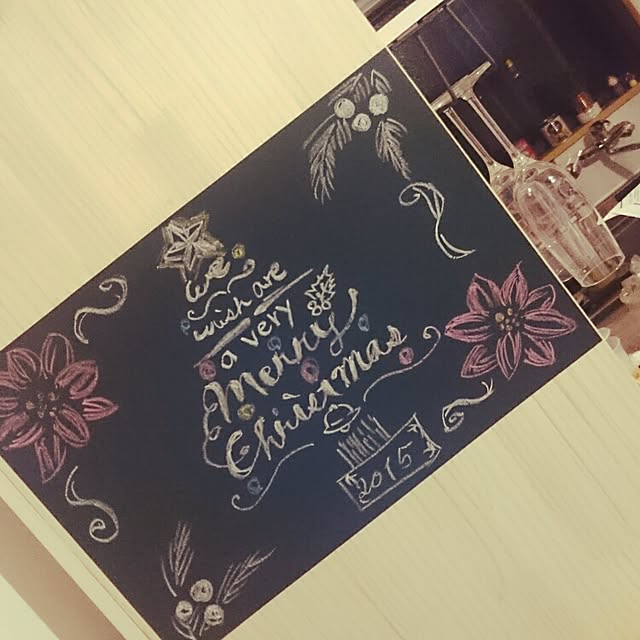 we
wish are
a very
Merry
Chirstmas
2015